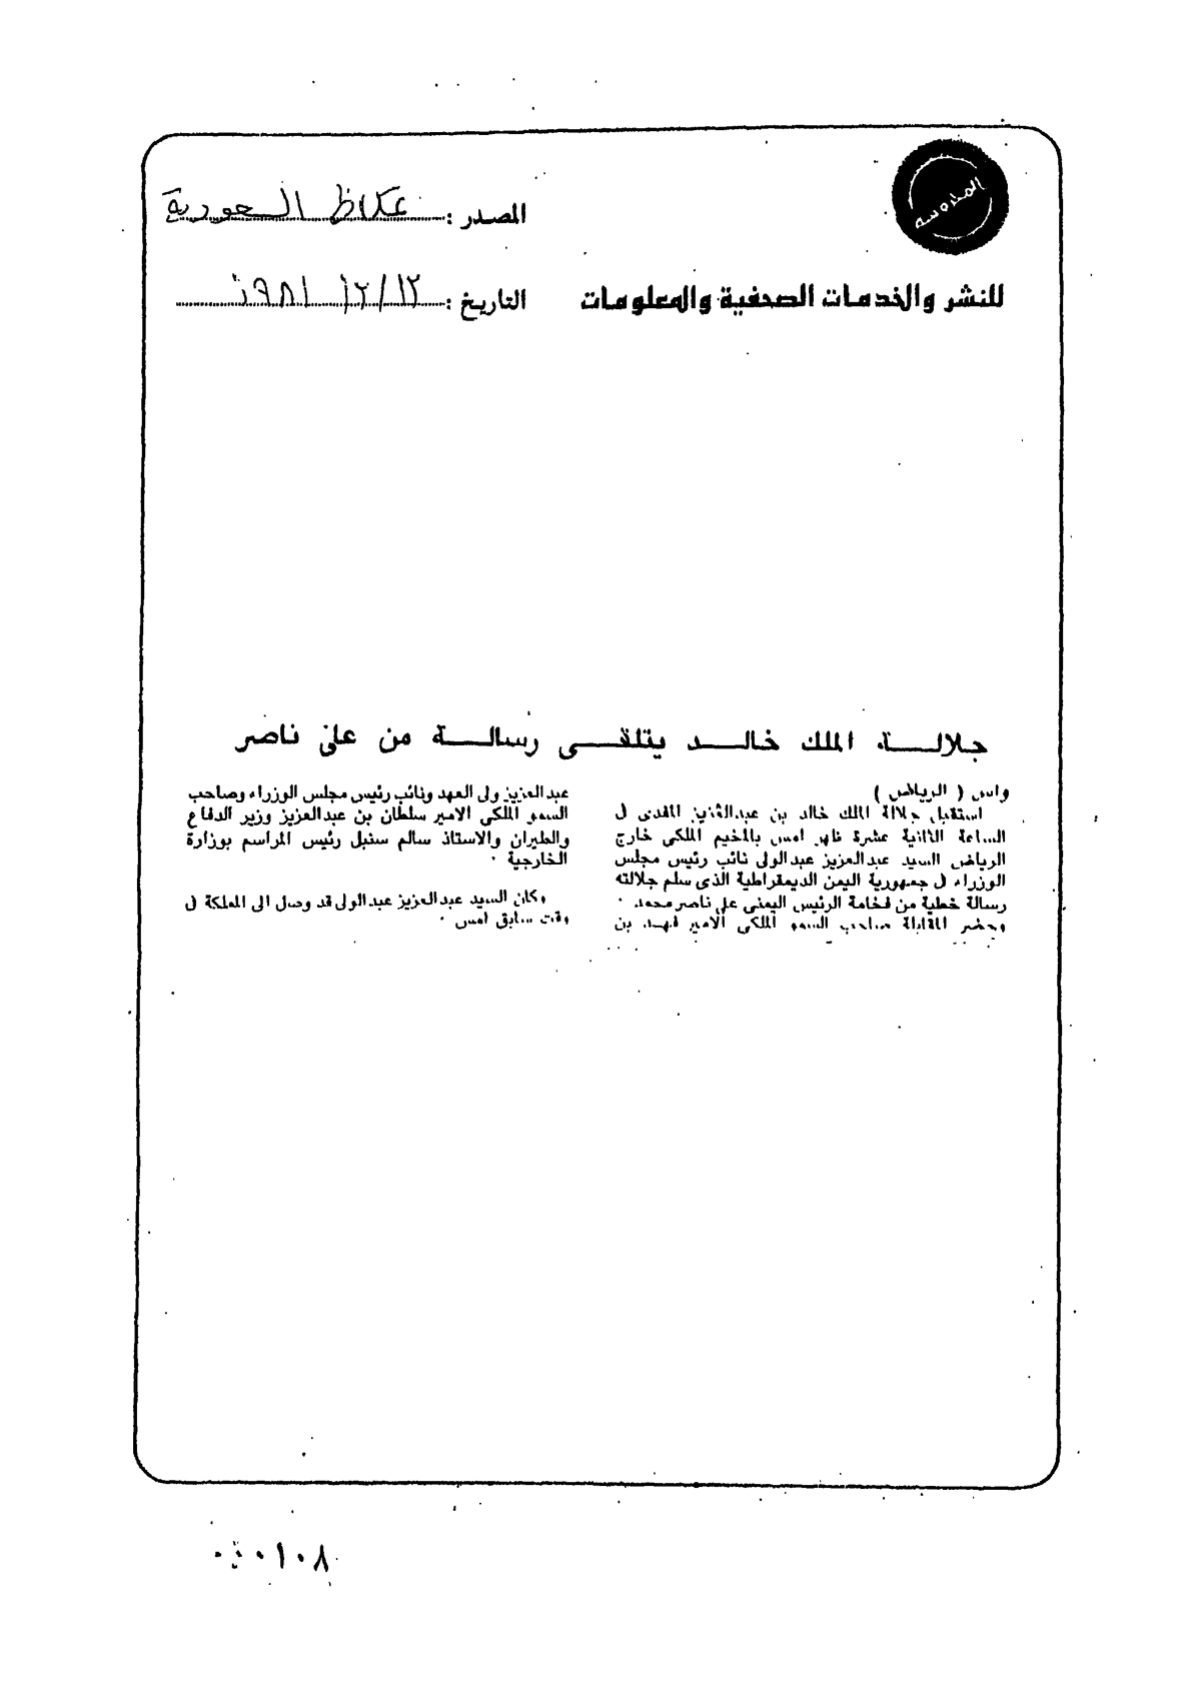 المدوسه
المصدر : عكاظ السعودية
للنشر والخدمات الصحفية والمعلومات
التاريخ : ١٢/١٢/١٩٨١
جلالـة الملك خالـد يتلقـى رسالـة من على ناصر
واس ( الرياض )
استقبل جلالة الملك خالد بن عبدالعزيز المفدى فى
الساعة الثانية عشرة ظهر امس بالمخيم الملكى خارج
الرياض السيد عبدالعزيز عبدالولى نائب رئيس مجلس
الوزراء فى جمهورية اليمن الديمقراطية الذى سلم جلالته
رسالة خطية من فخامة الرئيس اليمنى على ناصر محمد ٠
وحضر المقابلة صاحب السمو الملكى الامير فهد بن
عبدالعزيز ولى العهد ونائب رئيس مجلس الوزراء وصاحب
السمو الملكى الامير سلطان بن عبدالعزيز وزير الدفاع
والطيران والاستاذ سالم سنبل رئيس المراسم بوزارة
الخارجية ٠
وكان السيد عبدالعزيز عبدالولى قد وصل الى المملكة فى
وقت سابق امس ٠
٠١٠٨